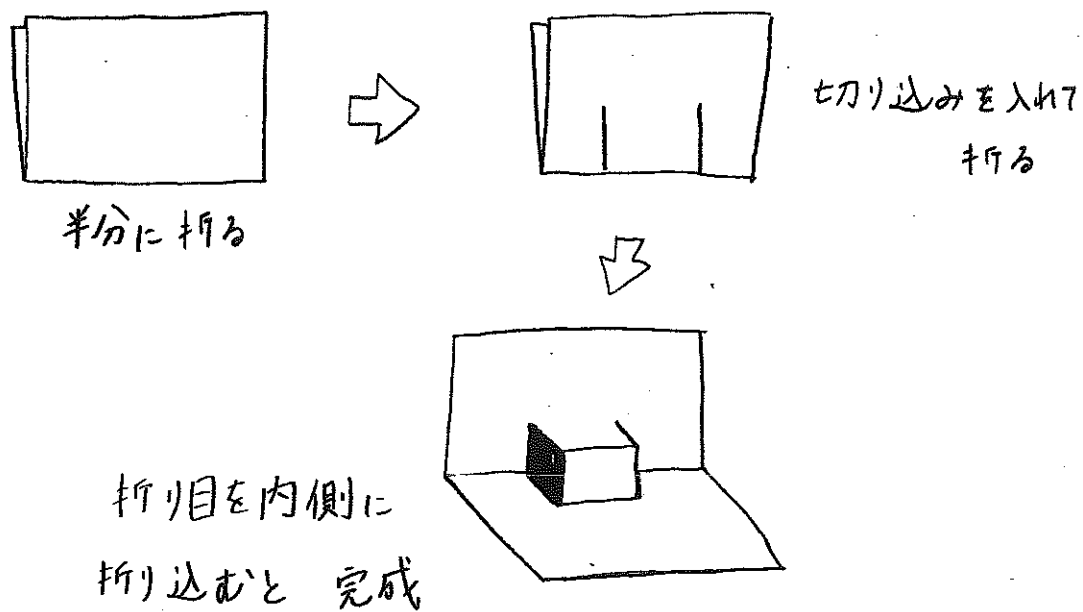 半分に折る
切り込みを入れて
折る
折り目を内側に
折り込むと 完成